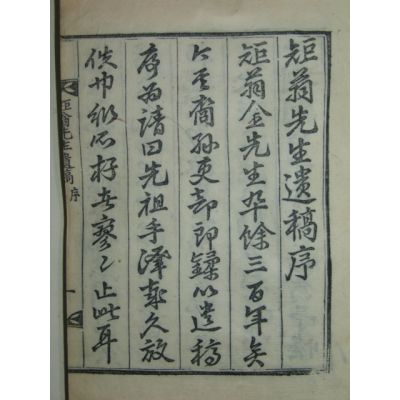 矩翁先生遺稿序
矩翁金先生卒餘三百年矣
今其裔孫錄以遺稿
序爲請曰先祖手澤歲久放
佚巾衍所存者寥々止此耳
矩翁先生遺稿 序 一